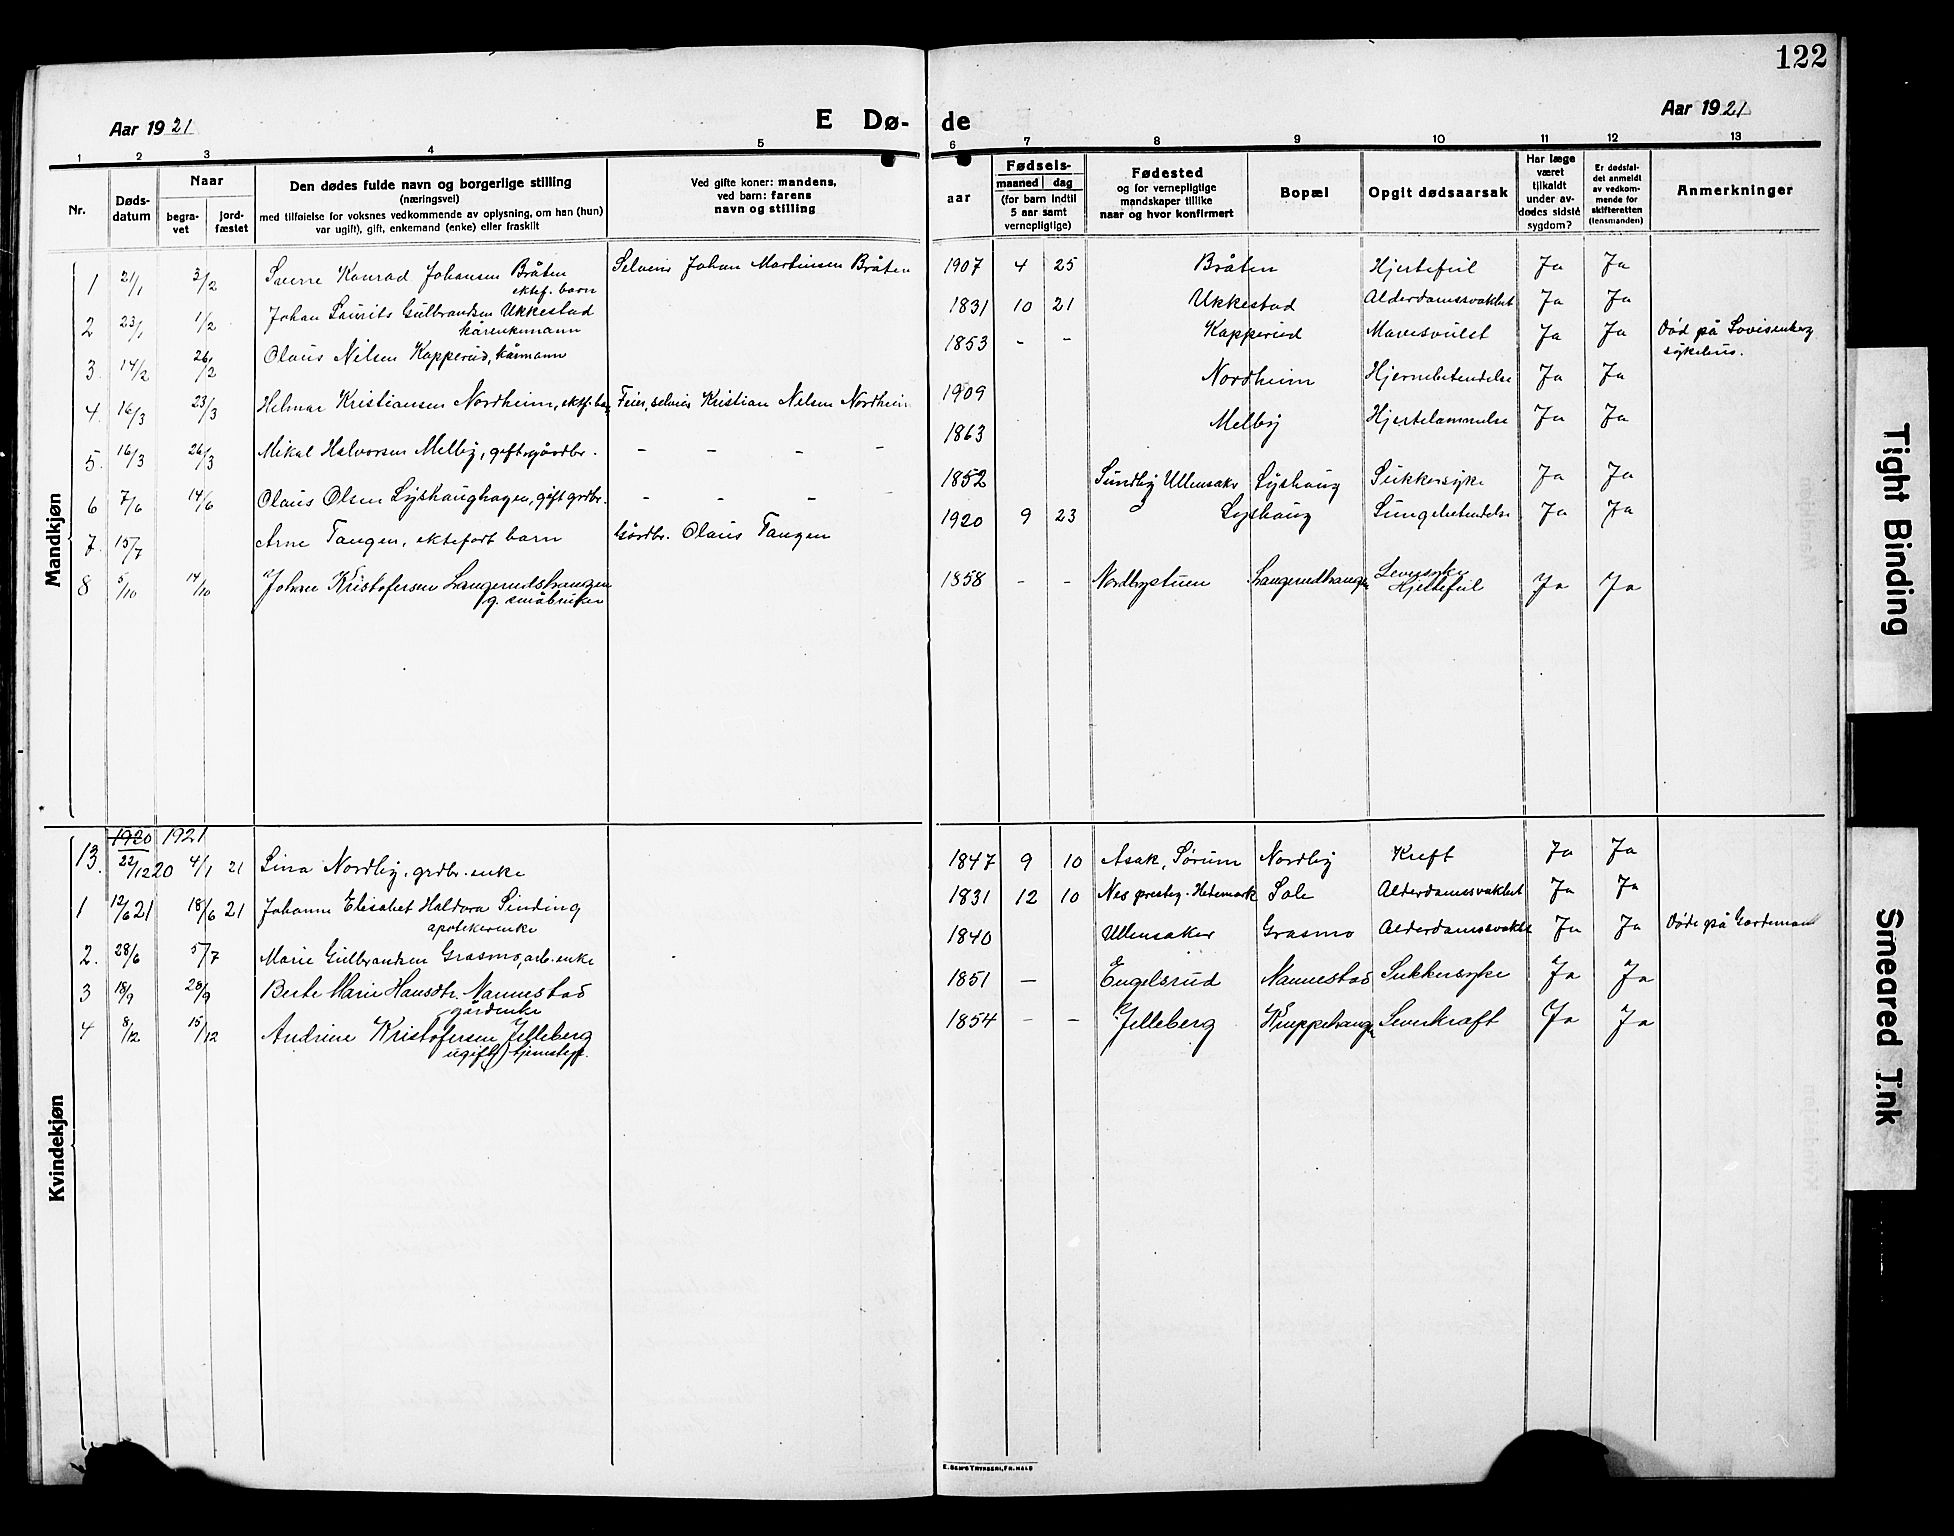 122
Aar 1921
E Dø- de
Aar 1921
1 2 3 4 5 6 7 8 9 10 11 12 13
Nr.
Døds-
datum
Naar
begra-
vet
jord-
fæstet
Den dødes fulde navn og borgerlige stilling
(næringsvei)
med tilføielse for voksnes vedkommende av oplysning, om han (hun)
var ugift), gift, enkemand (enke) eller fraskilt
Ved gifte koner: mandens,
ved barn: farens
navn og stilling
aar
Fødsels-
maaned dag
(for barn indtil
5 aar samt
vernepligtige)
Fødested
og for vernepligtige
mandskaper tillike
naar og hvor konfirmert
Bopæl
Opgit dødsaarsak
Har læge
været
tilkaldt
under av-
dødes sidste
sygdom?
Er dødsfal-
det anmeldt
av vedkom-
mende for
skifteretten
(lensmanden)
Anmerkninger
Mandkjøn
1 21/1 3/2 Sverre Konrad Johansen Bråten Selveier Johan Martinsen Bråten 1907 4 25 Bråten Hjertefeil Ja Ja
ektef. barn
2 23/1 1/2 Johan Laurits Gulbrandsen Ukkestad 1831 10 21 Ukkestad Alderdomssvakhet Ja Ja
kårenkemann
3. 14/2 26/2 Olaus Nilsen Kapperud, kårmann 1853 - - Kapperud Mavesvulst Ja Ja Død på Lovisenberg
sykehus.
4. 16/3 23/3 Helmar Kristiansen Nordheim, ektf. barn Feier, selveier Kristian Nelsen Nordheim 1909 Nordheim Hjernebetendelse Ja Ja
5. 16/3 26/3 Mikal Halvorsen Melby, gift gårdbr. - - - - 1863 Melby Hjertelammelse Ja Ja
6 7/6 14/6 Olaus Olsen Lyshaughagen, gift grdbr. - - - - 1852 Sundby Ullensaker Lyshaug Sukkersyke Ja Ja
7. 15/7 Arne Tangen, ektefødt barn Gårdbr. Olaus Tangen 1920 9 23 Lyshaug Lungebetendelse Ja Ja
8 5/10 14/10 Johan Kristofersen Langerudshaugen 1858 - - Nordbystuen Langerudhaugen Leversyke Ja Ja
g. småbruker Hjertefeil
Kvindekjøn
1920 1921
13. 22/12 20 4/1 21 Lina Nordby, grdbr. enke 1847 9 10 Asak, Sørum Nordby Kreft Ja Ja
1 12/6 21 18/6 21 Johanne Elisabet Haldora Sinding 1831 12 10 Nes prestegj. Hedemark Sole Alderdomssvakhet Ja Ja
apotekerenke
2. 28/6 5/7 Marie Gulbrandsen Grasmo, arb. enke 1840 Ullensaker Grasmo Alderdomssvakhet Ja Ja Døde på Gardemoen
3 18/9 28/9 Berte Marie Hansdtr. Nannestad 1851 - Engelsrud Nannestad Sukkersyke Ja Ja
gårdenke
4 8/12 15/12 Andrine Kristofersen Jelleberg 1854 - - Jelleberg Kneppehaugen Leverkræft Ja Ja
ugift, tjenestepi.
E. SEM'S TRYKKERI, FR.HALD
Tight Binding
Smeared Ink